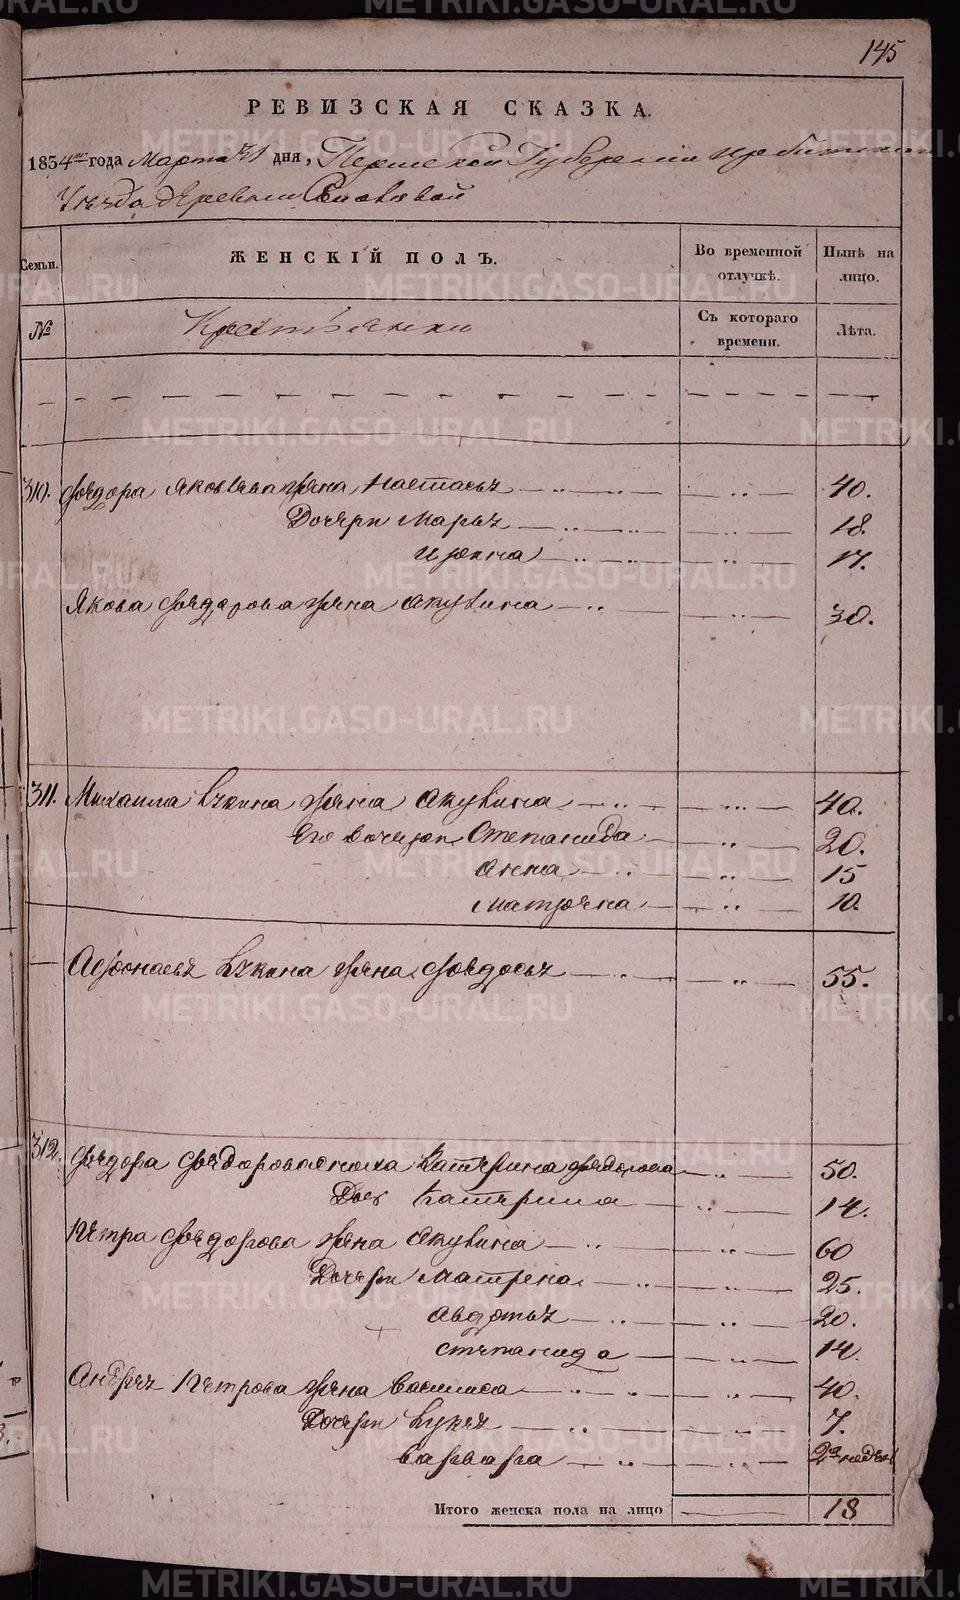 145
РЕВИЗСКАЯ СКАЗКА.
1834 года Марта 31 дня, Пермской Губернии Ирбитскаго
Уезда деревни
Семьи. ЖЕНСКІЙ ПОЛЪ. Во временной отлучкѣ. Нынѣ на лицо.
№ Крестьянки Съ котораго времени. Лѣта.
310. Федора Яковлева жена Настасья 40.
Дочери Марья 18.
Ирина 17.
Якова Федорова жена Акулина 30.
311. Михаила жена Акулина 40.
Его дочери Степанида 20.
Анна 15
Матрена 10.
жена Федосья 55.
312. Федора Федорова Катерина Федорова 50.
Доч Катерина 14.
Петра Федорова жена Акулина 60
Дочери Матрена 25.
Авдотья 20.
Степанида 14.
Андрея Петрова жена Василиса 40.
Дочери 7.
Варвара 2 недели
Итого женска пола на лицо 18
METRIKI.GASO-URAL.RU